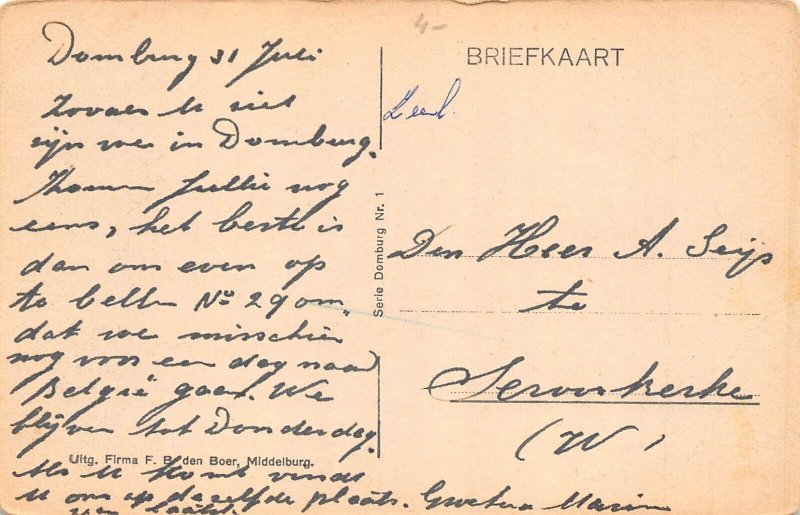 4-
BRIEFKAART
Domburg 31 Juli
Zooals U ziet
zijn we in Domburg.
Komen Jullie nog
eens, het beste is
dan om even op
te bellen No 29 om
dat we misschien
nog voor een dag naar
België gaan. We
blijven tot Donderdag.
Als U komt vindt
U ons op dezelfde plaats. Groeten
Zeel.
Serie Domburg Nr. 1
Den Heer A. Seijs
te
Serooskerke
(W)
Uitg. Firma F. B. den Boer, Middelburg.